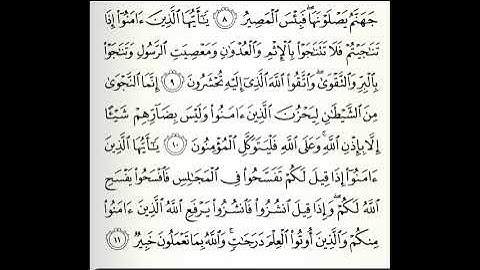 جَهَنَّمُ يَصْلَوْنَهَا ۖ فَبِئْسَ ٱلْمَصِيرُ ٨ يَـٰٓأَيُّهَا ٱلَّذِينَ ءَامَنُوٓا۟ إِذَا
تَنَـٰجَيْتُمْ فَلَا تَتَنَـٰجَوْا۟ بِٱلْإِثْمِ وَٱلْعُدْوَٰنِ وَمَعْصِيَتِ ٱلرَّسُولِ وَتَنَـٰجَوْا۟
بِٱلْبِرِّ وَٱلتَّقْوَىٰ ۖ وَٱتَّقُوا۟ ٱللَّهَ ٱلَّذِىٓ إِلَيْهِ تُحْشَرُونَ ٩ إِنَّمَا ٱلنَّجْوَىٰ
مِنَ ٱلشَّيْطَـٰنِ لِيَحْزُنَ ٱلَّذِينَ ءَامَنُوا۟ وَلَيْسَ بِضَآرِّهِمْ شَيْـًٔا
إِلَّا بِإِذْنِ ٱللَّهِ ۚ وَعَلَى ٱللَّهِ فَلْيَتَوَكَّلِ ٱلْمُؤْمِنُونَ ١٠ يَـٰٓأَيُّهَا ٱلَّذِينَ
ءَامَنُوٓا۟ إِذَا قِيلَ لَكُمْ تَفَسَّحُوا۟ فِى ٱلْمَجَـٰلِسِ فَٱفْسَحُوا۟ يَفْسَحِ
ٱللَّهُ لَكُمْ ۖ وَإِذَا قِيلَ ٱنشُزُوا۟ فَٱنشُزُوا۟ يَرْفَعِ ٱللَّهُ ٱلَّذِينَ ءَامَنُوا۟
مِنكُمْ وَٱلَّذِينَ أُوتُوا۟ ٱلْعِلْمَ دَرَجَـٰتٍ ۚ وَٱللَّهُ بِمَا تَعْمَلُونَ خَبِيرٌ ١١